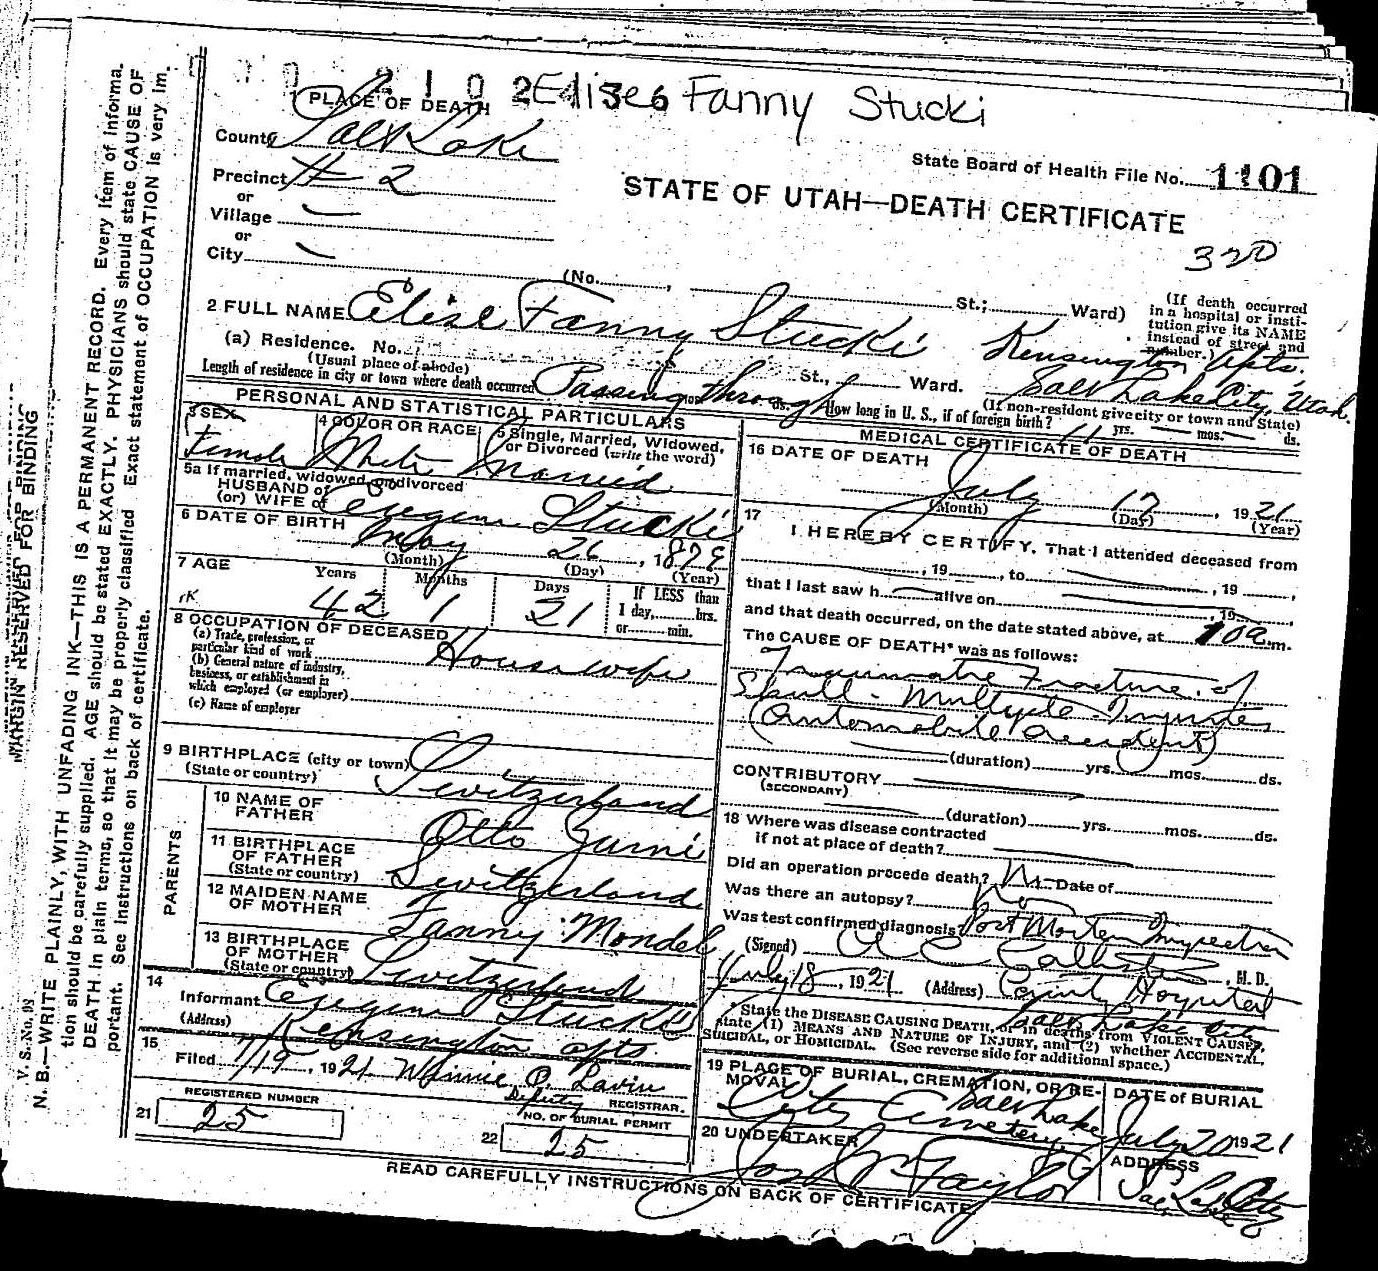 2102 136 Elise Fanny Stucki
PLACE OF DEATH
County Salt Lake
State Board of Health File No. 1101
Precinct # 2
STATE OF UTAH—DEATH CERTIFICATE
or
Village
or
City
320
(No. , St.; Ward)
(If death occurred in a hospital or insti-
tution give its NAME
instead of street and
number.)
2 FULL NAME Elise Fanny Stucki
(a) Residence. No. St., Ward. Kensington Apts. Salt Lake City, Utah.
(Usual place of abode)
(If non-resident give city or town and State)
Length of residence in city or town where death occurred Passing through mos. ds. How long in U. S., if of foreign birth? 11 yrs. — mos. — ds.
PERSONAL AND STATISTICAL PARTICULARS
3 SEX Female
4 COLOR OR RACE White
5 Single, Married, Widowed,
or Divorced (write the word)
Married
5a If married, widowed, or divorced
HUSBAND of
(or) WIFE of Eugene Stucki
6 DATE OF BIRTH May 26, 1879
(Month) (Day) (Year)
7 AGE Years Months Days If LESS than
1 day, hrs.
or min.
42 1 21
8 OCCUPATION OF DECEASED
(a) Trade, profession, or
particular kind of work Housewife
(b) General nature of industry,
business, or establishment in
which employed (or employer)
(c) Name of employer
9 BIRTHPLACE (city or town)
(State or country) Switzerland
PARENTS
10 NAME OF
FATHER Otto
11 BIRTHPLACE
OF FATHER
(State or country) Switzerland
12 MAIDEN NAME
OF MOTHER Fanny Mondel
13 BIRTHPLACE
OF MOTHER
(State or country) Switzerland
14
Informant Eugene Stucki
(Address) Kensington apts.
15
Filed 7/19, 1921 Winnie O. Lavin
Deputy REGISTRAR.
REGISTERED NUMBER
21 25
NO. OF BURIAL PERMIT
22 25
MEDICAL CERTIFICATE OF DEATH
16 DATE OF DEATH
July 17, 1921
(Month) (Day) (Year)
17
I HEREBY CERTIFY, That I attended deceased from
, 19 , to , 19 ,
that I last saw h alive on , 19
and that death occurred, on the date stated above, at 10 a. m.
The CAUSE OF DEATH* was as follows:
Traumatic Fracture of
Skull - Multiple Injuries
(Automobile accident)
(duration) yrs. mos. ds.
CONTRIBUTORY
(SECONDARY)
(duration) yrs. mos. ds.
18 Where was disease contracted
if not at place of death?
Did an operation precede death? No Date of
Was there an autopsy? No
Was test confirmed diagnosis Post Mortem Inspection
(Signed) Callister, M. D.
July 18, 1921 (Address) County Hospital
Salt Lake City
*State the DISEASE CAUSING DEATH, or in deaths from VIOLENT CAUSES,
state (1) MEANS AND NATURE OF INJURY, and (2) whether ACCIDENTAL,
SUICIDAL, or HOMICIDAL. (See reverse side for additional space.)
19 PLACE OF BURIAL, CREMATION, OR RE-
MOVAL
City Cemetery Salt Lake
DATE of BURIAL
July 20 1921
20 UNDERTAKER
Jos. Wm Taylor
ADDRESS
Salt Lake City
READ CAREFULLY INSTRUCTIONS ON BACK OF CERTIFICATE
V. S. No. 98
MARGIN RESERVED FOR BINDING
N. B.—WRITE PLAINLY, WITH UNFADING INK—THIS IS A PERMANENT RECORD. Every item of informa-
tion should be carefully supplied. AGE should be stated EXACTLY. PHYSICIANS should state CAUSE OF
DEATH in plain terms, so that it may be properly classified. Exact statement of OCCUPATION is very im-
portant. See instructions on back of certificate.